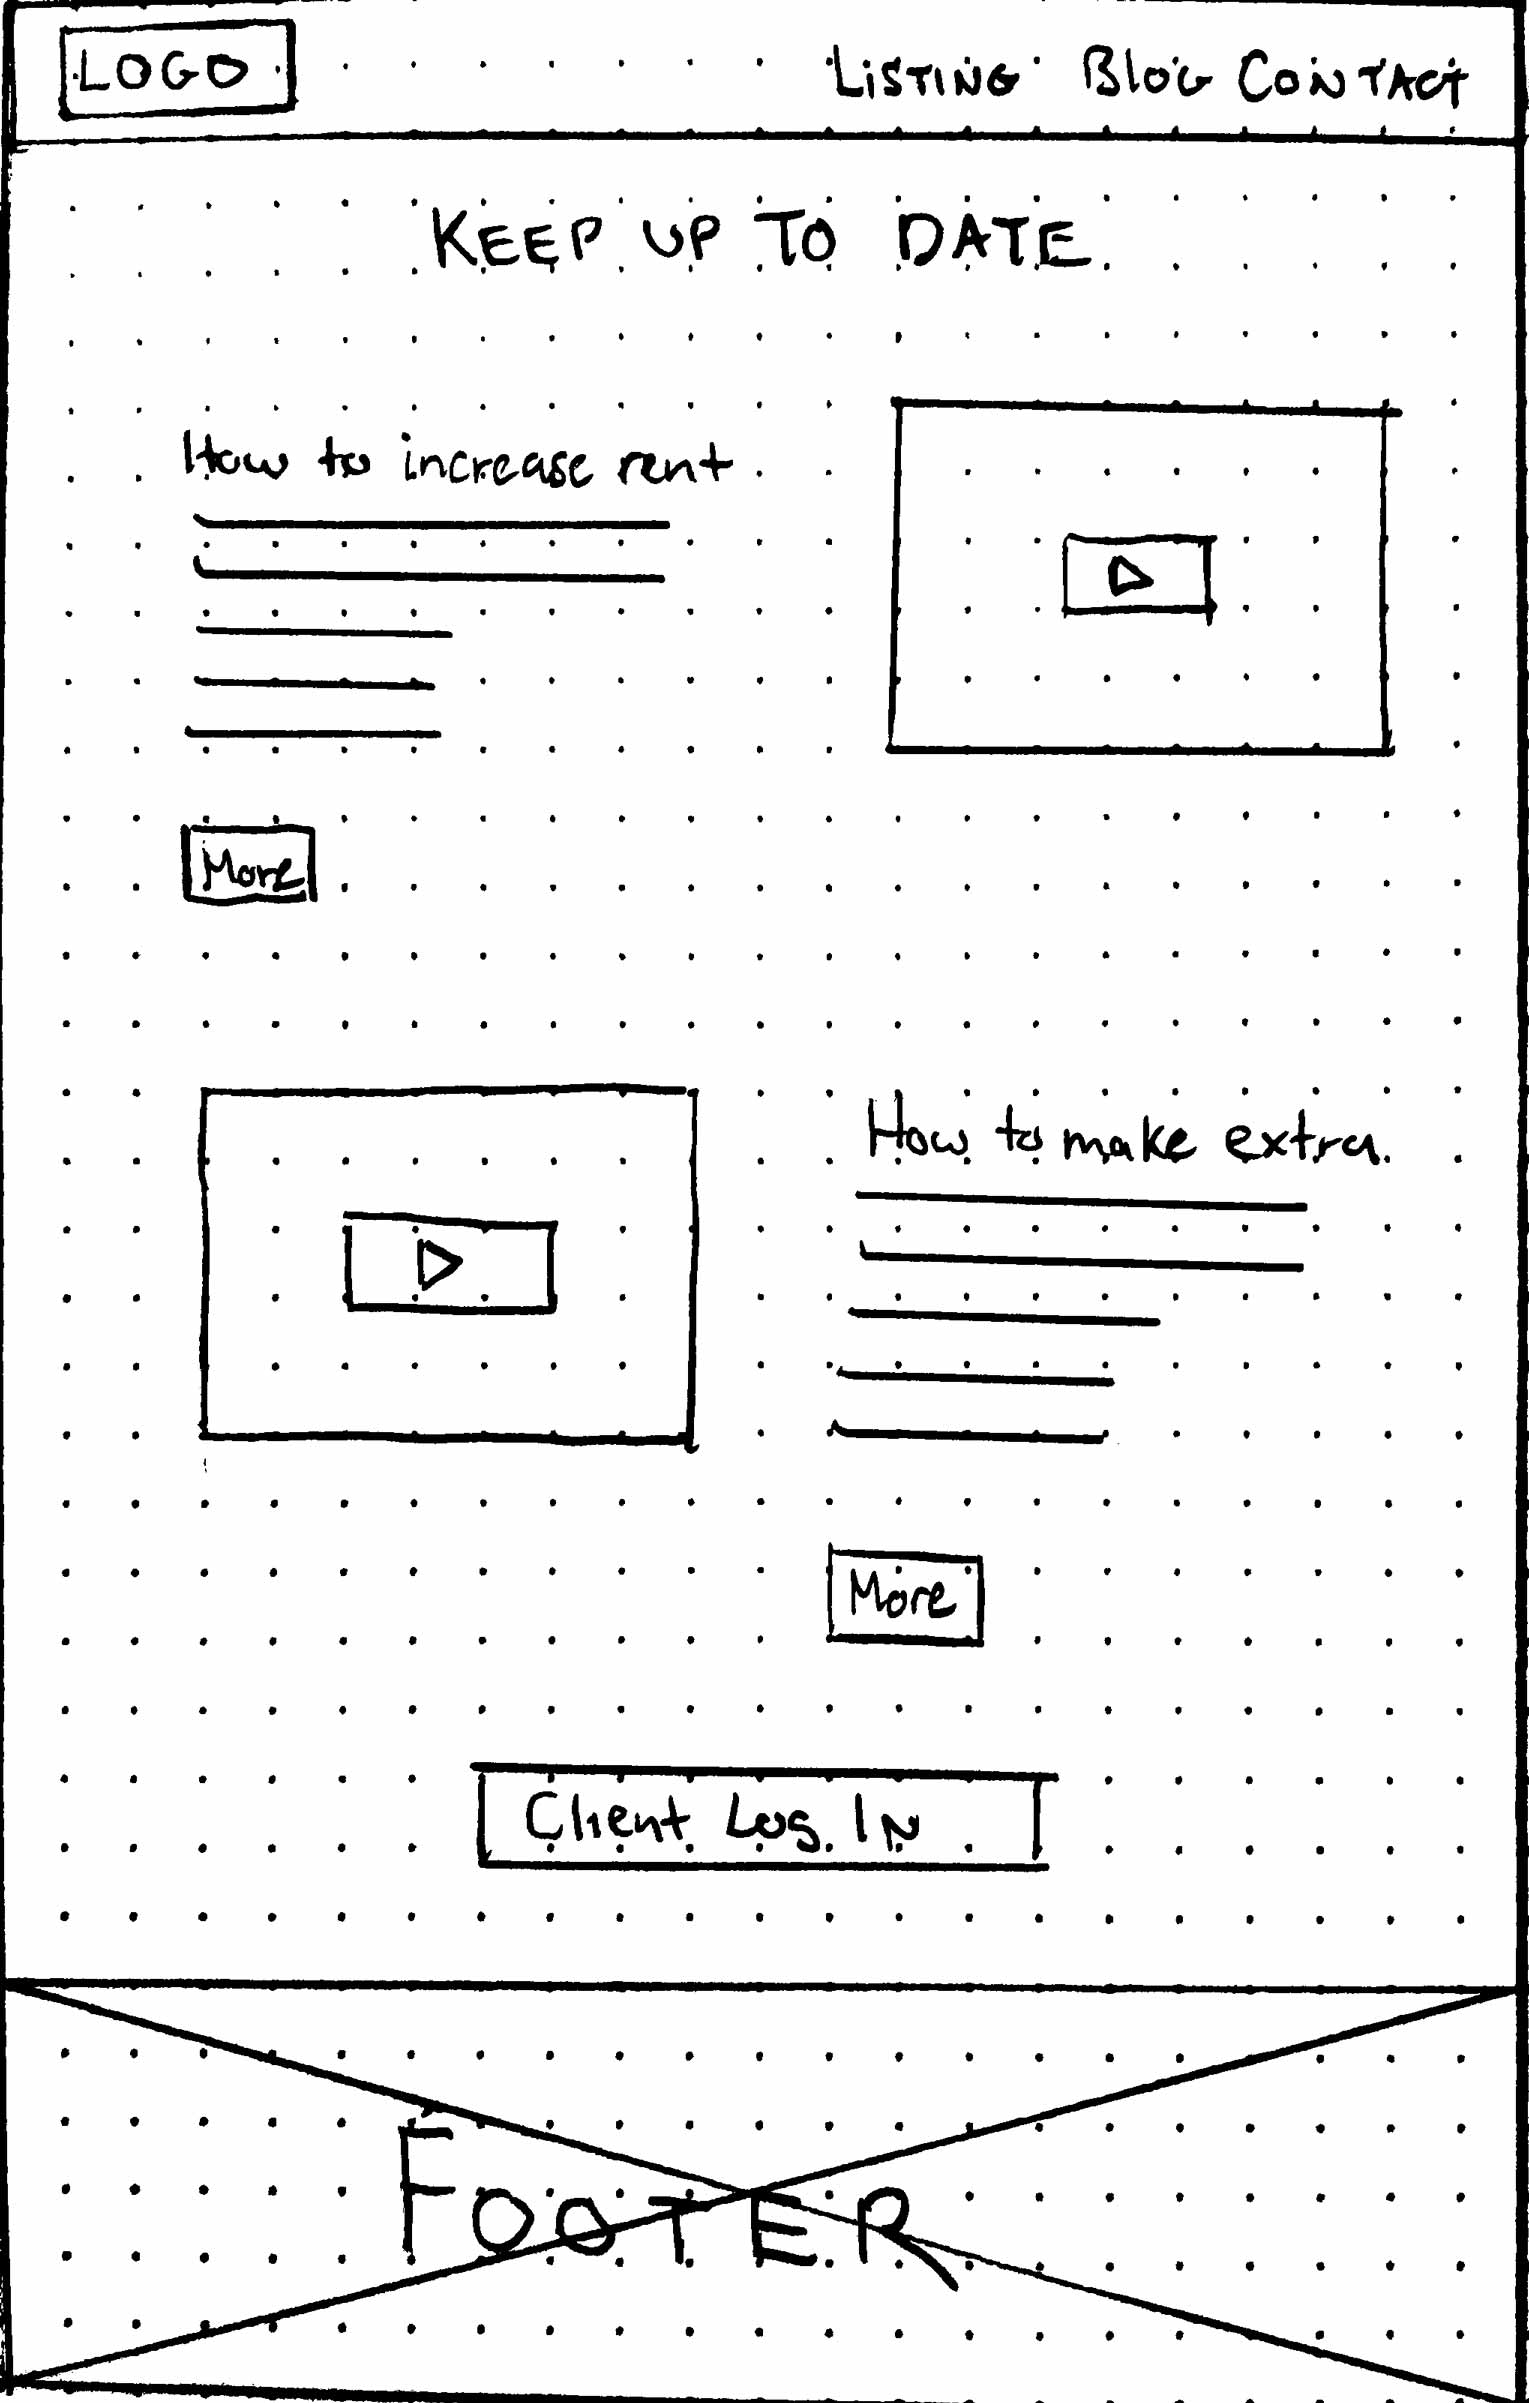 LOGO
LiSTING BlOG CONTACT
KEEP UP TO DATE
How to increase rent
More
How to make extra
More
Client Log IN
FOOTER